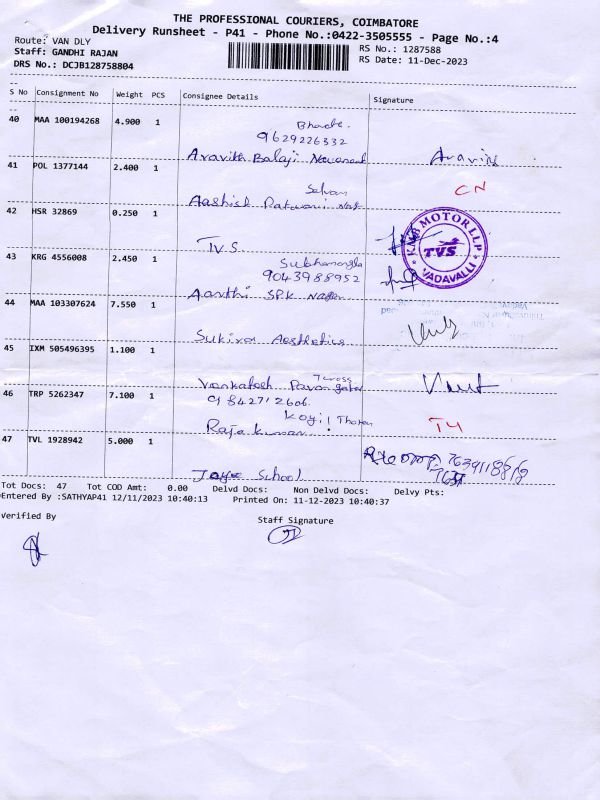 THE PROFESSIONAL COURIERS, COIMBATORE
Delivery Runsheet - P41 - Phone No.:0422-3505555 - Page No.:4
Route: VAN DLY
RS No.: 1287588
Staff: GANDHI RAJAN
RS Date: 11-Dec-2023
DRS No.: DCJB128758804
S No Consignment No Weight PCS Consignee Details Signature
40 MAA 100194268 4.900 1
9629226332
Aravith Balaji
41 POL 1377144 2.400 1
Selvan
Aashish
CN
42 HSR 32869 0.250 1
TVS
KMB MOTOR LLP
TVS
VADAVALLI
43 KRG 4556008 2.450 1
9043988952
Aarthi SPK
44 MAA 103307624 7.550 1
Aesthetics
45 IXM 505496395 1.100 1
46 TRP 5262347 7.100 1
9842712606
Koyil
47 TVL 1928942 5.000 1
School
Tot Docs: 47 Tot COD Amt: 0.00 Delvd Docs: Non Delvd Docs: Delvy Pts:
Entered By :SATHYAP41 12/11/2023 10:40:13 Printed On: 11-12-2023 10:40:37
Verified By
Staff Signature